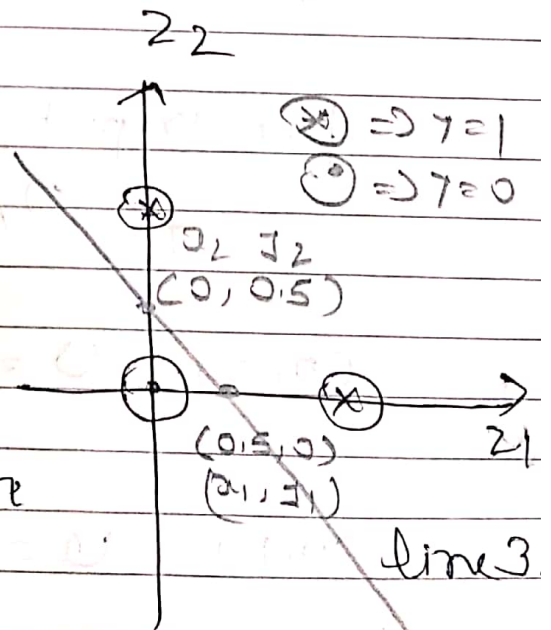 z2
⊗ => y=1
⊙ => y=0
x2 y2
(0, 0.5)
(0.5, 0)
z1
(x1, y1)
line 3